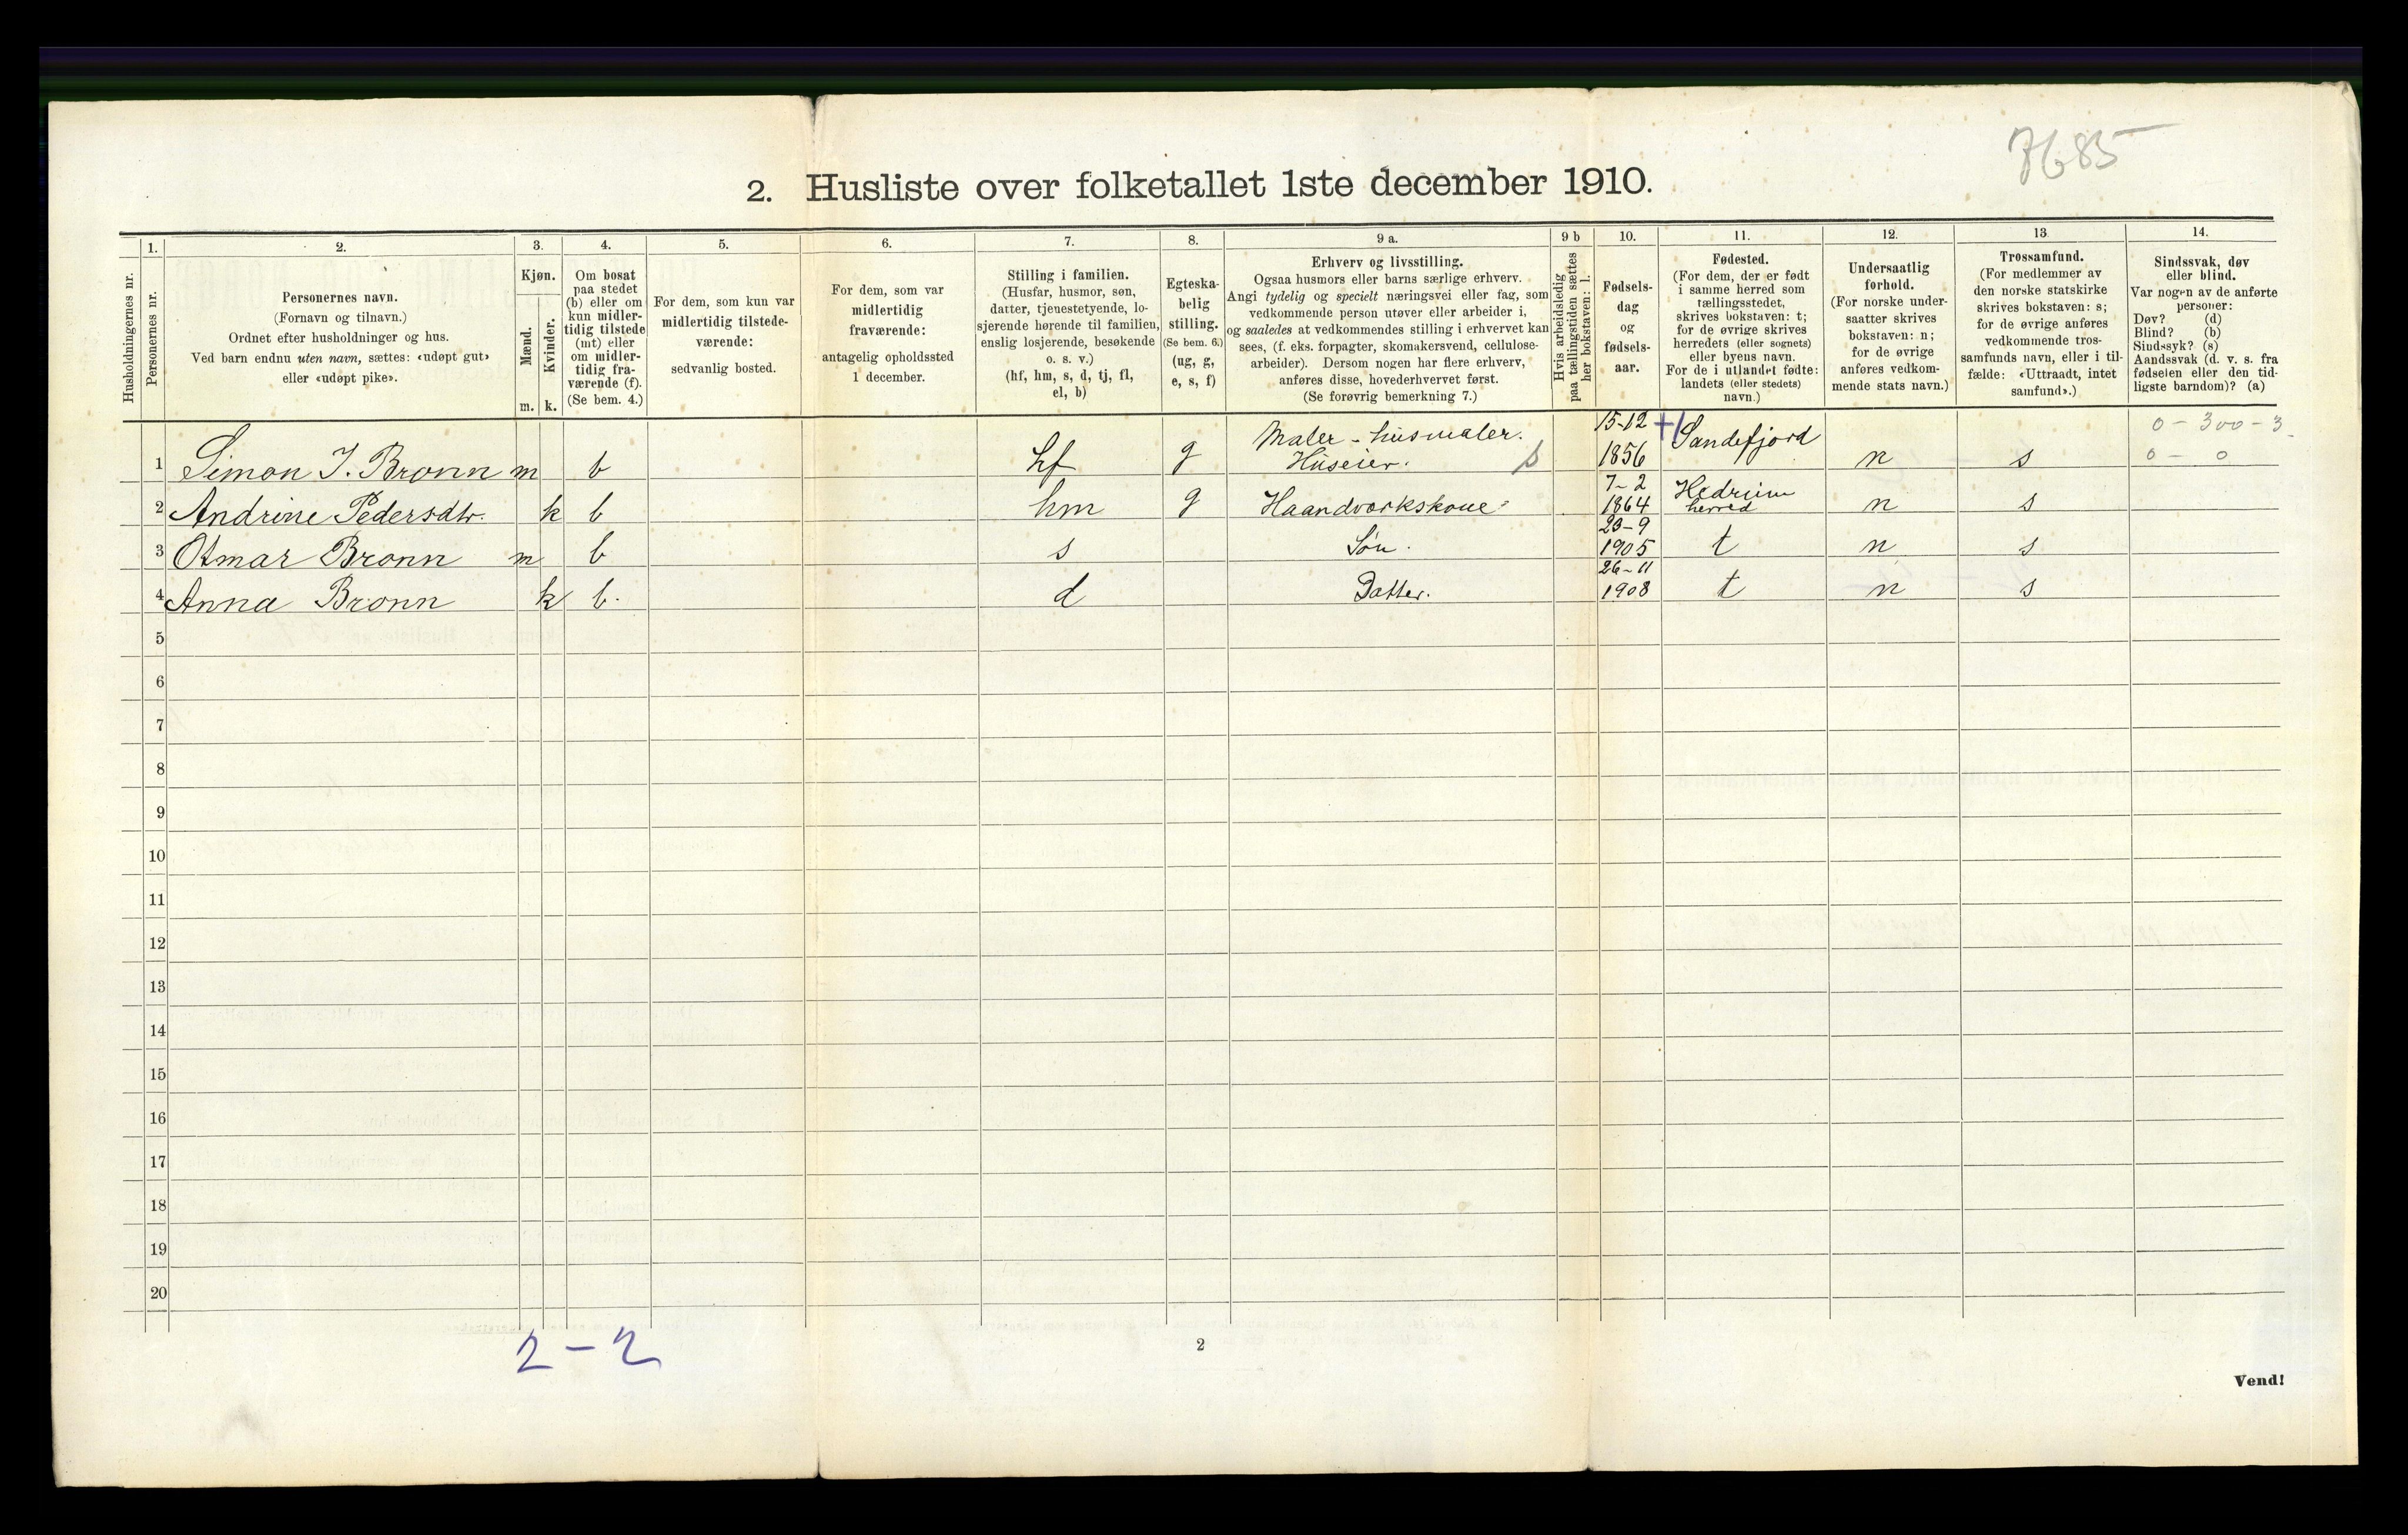 7685
2. Husliste over folketallet 1ste december 1910.
Husholdningernes nr.
1.
Personernes nr.
2.
Personernes navn.
(Fornavn og tilnavn.)
Ordnet efter husholdninger og hus.
Ved barn endnu uten navn, sættes: «udøpt gut»
eller «udøpt pike».
3.
Kjøn.
Mænd.
Kvinder.
m. k.
4.
Om bosat
paa stedet
(b) eller om
kun midler-
tidig tilstede
(mt) eller
om midler-
tidig fra-
værende (f).
(Se bem. 4.)
5.
For dem, som kun var
midlertidig tilstede-
værende:
sedvanlig bosted.
6.
For dem, som var
midlertidig
fraværende:
antagelig opholdssted
1 december.
7.
Stilling i familien.
(Husfar, husmor, søn,
datter, tjenestetyende, lo-
sjerende hørende til familien,
enslig losjerende, besøkende
o. s. v.)
(hf, hm, s, d, tj, fl,
el, b)
8.
Egteska-
belig
stilling.
(Se bem. 6.)
(ug, g,
e, s, f)
9 a.
Erhverv og livsstilling.
Ogsaa husmors eller barns særlige erhverv.
Angi tydelig og specielt næringsvei eller fag, som
vedkommende person utøver eller arbeider i,
og saaledes at vedkommendes stilling i erhvervet kan
sees, (f. eks. forpagter, skomakersvend, cellulose-
arbeider). Dersom nogen har flere erhverv,
anføres disse, hovederhvervet først.
(Se forøvrig bemerkning 7.)
9 b
Hvis arbeidsledig
paa tællingstiden sættes
her bokstaven: l.
10.
Fødsels-
dag
og
fødsels-
aar.
11.
Fødested.
(For dem, der er født
i samme herred som
tællingsstedet,
skrives bokstaven: t;
for de øvrige skrives
herredets (eller sognets)
eller byens navn.
For de i utlandet fødte:
landets (eller stedets)
navn.)
12.
Undersaatlig
forhold.
(For norske under-
saatter skrives
bokstaven: n;
for de øvrige
anføres vedkom-
mende stats navn.)
13.
Trossamfund.
(For medlemmer av
den norske statskirke
skrives bokstaven: s;
for de øvrige anføres
vedkommende tros-
samfunds navn, eller i til-
fælde: «Uttraadt, intet
samfund».)
14.
Sindssvak, døv
eller blind.
Var nogen av de anførte
personer:
Døv? (d)
Blind? (b)
Sindssyk? (s)
Aandssvak (d. v. s. fra
fødselen eller den tid-
ligste barndom)? (a)
Maler - husmaler. 15-12 Sandefjord 0 - 300 - 3
1 Simon I. Bronn m b hf g Huseier. 1856 n s 0 - 0
7-2 Hedrum
2 Andrine Pedersdtr. k b hm g Haandværkskone 1864 herred n s
23-9
3 Otmar Bronn m b s Søn. 1905 t n s
26-11
4 Anna Bronn k b. d Datter. 1908 t n s
5
6
7
8
9
10
11
12
13
14
15
16
17
18
19
20
2 - 2
2
Vend!